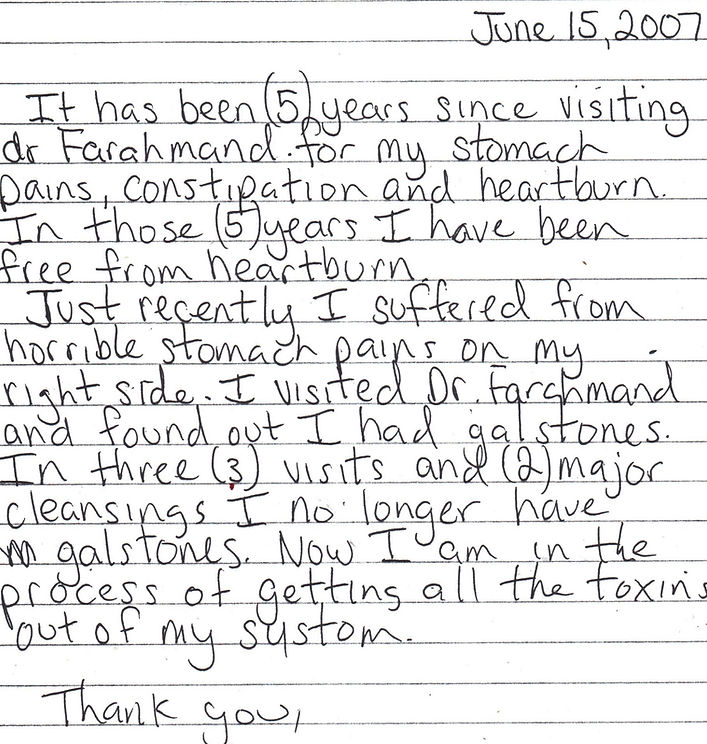 June 15, 2007
It has been (5) years since visiting
dr Farahmand. for my stomach
pains, constipation and heartburn.
In those (5) years I have been
free from heartburn.
Just recently I suffered from
horrible stomach pains on my
right side. I visited Dr. Farahmand
and found out I had galstones.
In three (3) visits and (2) major
cleansings I no longer have
galstones. Now I am in the
process of getting all the toxins
out of my systom.
Thank you,